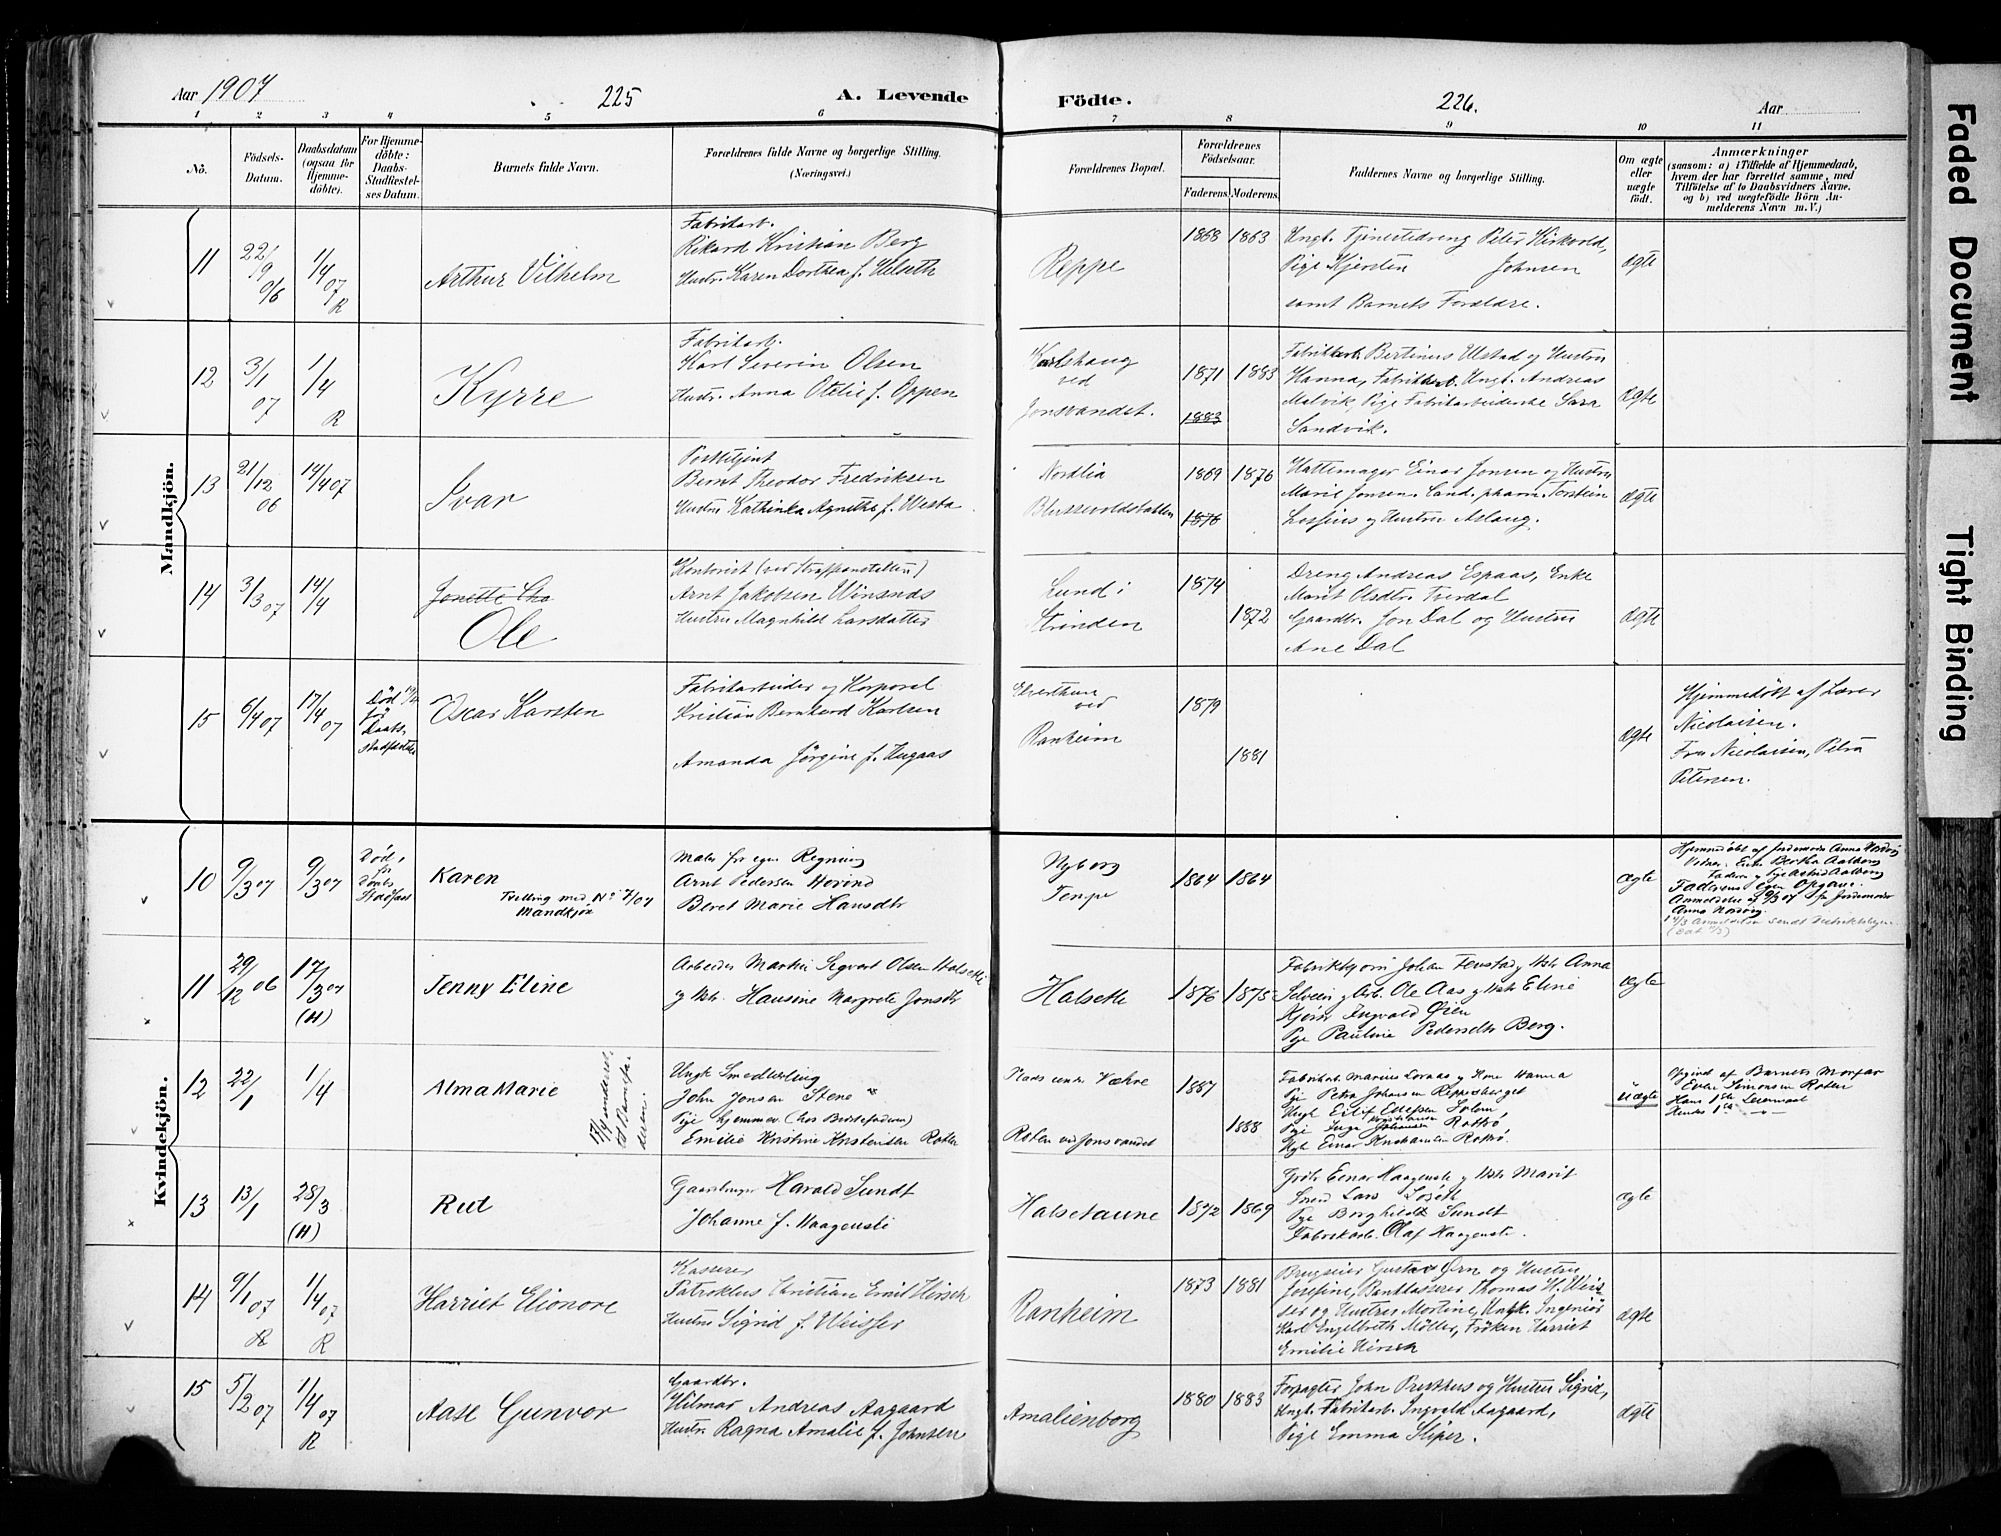 Aar 1907
225
A. Levende
Födte.
226.
Aar
1 2 3 4 5 6 7 8 9 10 11
No.
Födsels-
Datum.
Daabsdatum
(ogsaa for
Hjemme-
döbte).
For Hjemme-
döbte:
Daabs-
Stadfæstel-
ses Datum.
Barnets fulde Navn.
Forældrenes fulde Navne og borgerlige Stilling.
(Næringsvei.)
Forældrenes Bopæl.
Forældrenes
Födselsaar.
Faderens Moderens
Faddernes Navne og borgerlige Stilling.
Om ægte
eller
uægte
födt.
Anmærkninger
(saasom: a) i Tilfælde af Hjemmedaab,
hvem der har forrettet samme, med
Tilföielse af to Daabsvidners Navne.
og b) ved uægtefödte Börn An-
melderens Navn m. V.)
Mandkjön.
11
22/9 06
1/4 07
R
Arthur Vilhelm
Fabrikarb.
Rikard Kristian Berg
Hustr. Karen Dorthea f. Helseth
Reppe
1868 1863
Ungk. Tjenestedreng Peter Kirkvold,
Pige Kjersten Johnsen
samt Barnets Forældre.
ægte
12
3/1 07
1/4
R
Kyrre
Fabrikarb.
Karl Severin Olsen
Hustr. Anna Otelie f. Oppen
Karlshaug
ved
Jonsvandet.
1871 1883
1883
Fabrikarb. Bertinus Ulstad og Hustru
Hanna, Fabrikarb. Ungk. Andreas
Malvik, Pige Fabrikarbeiderske Sara
Sandvik.
ægte
13
21/12 06
14/4 07
Ivar
Bernt Theodor Fredriksen
Hustru Kathinka Agnethe f. Westa
Nordlia
1869 1876
1876
Hattemager Einar Jonsen og Hustru
Marie Jonsen. Cand. pharm. Torstein
Lossius og Hustru Aslaug.
ægte
14
3/3 07
14/4
Ole
Kontorist (ved Strafanstalten)
Arnt Jakobsen Winsnes
Hustru Magnhild Larsdatter
Lund i
Strinden
1874
1872
Dreng Andreas Espaas, Enke
Marit Olsdtr. Tverdal
Gaardbr. Jon Dal og Hustru
Ane Dal
ægte
15
6/4 07
17/4 07
Død
før
Daabs
stadfæstelse
Oscar Karsten
Fabrikarbeider og Korporal
Kristian Bernhard Karlsen
Amanda Jörgine f. Hugaas
ved
Ranheim
1879
1881
ægte
Hjemmedöbt af Lærer
Nicolaisen.
Fru Nicolaisen, Petra
Petersen.
Kvindekjön.
10
9/3 07
9/3 07
Død
før
Daabs
Stadfæst
Karen
Tvilling med No 7/07
Mandkjön
Maler for egen Regning
Arnt Pedersen Hovind
Beret Marie Hansdtr
Nyborg
Tempe
1864 1864
ægte
Hjemmedøbt af Jordemoder Anna Nordvig
Vidner: Enke Bertha Aalberg
Faderen og Pige Astrid Aalberg
Faderens egen Opgave.
Anmeldelse af 9/3 07 fra Jordemoder
Anna Nordvig
11
29/12 06
17/3 07
(H)
Jenny Eline
Arbeider Martin Sigvart Olsen Halsetli
og Hstr. Hansine Margrete Jonsdtr
Halsetli
1876 1875
Fabrikbyorm Johan Tenstad og Hstr Anna
Solveien og Arb. Ole Aas og Hstr Eline
Kjörer Ingvald Øien
Pige Pauline Pedersdtr Berg.
ægte
12
22/1
1/4
Alma Marie
Ungk Smedlærling
John Jonsen Stene
Pige hjemmev. (hos Bedsteforældrene)
Emilie Kristine Kristensen Roten
Plads under Være
Roten ved Jonsvandet
1887
1888
Fabrikarb. Marius Loraas og Kone Hanna
Pige Petra Johansen Reppesberget
Ungk Eilif Ellefsen Solem,
Pige Inga Johansen Rotten,
Ungk Einar Kristiansen Rotten.
uægte
Opgivet af Barnets Morfar
Even Simonsen Roten
Hans 1ste Leiermaal
Hendes 1ste —"—
13
13/1
28/3
(H)
Rut
Gaardbruger Harald Sundt
Johanne f. Haagensli
Halsetaune
1872 1869
Grdbr Einar Haagensli og Hstr Marit
Smed Lars Loseth
Pige Borghild Sundt
Fabrikarb. Olaf Haagensli.
ægte
14
9/1 07
R
1/4 07
R
Harriet Elionore
Kasserer
Patroklus Christian Emil Hirsch
Hustru Sigrid f. Weisser
Ranheim
1873 1881
Brugseier Gustav Ørn og Hustru
Josefine, Bankkasserer Thomas H. Weis-
ser og Hustru Martine, Ungk. Ingeniør
Karl Engelbreth Möller, Fröken Harriet
Emilie Hirsch
ægte
15
5/2 07
1/4 07
R
Aase Gunvor
Gaardbr.
Hilmar Andreas Aagaard
Hustr. Ragna Amalie f. Johnsen
Amalienborg
1880 1883
Forpagter John Presthus og Hustru Sigrid,
Ungk. Fabrikarb. Ingvald Aagaard,
Pige Emma Sliper.
ægte
Faded Document
Tight Binding